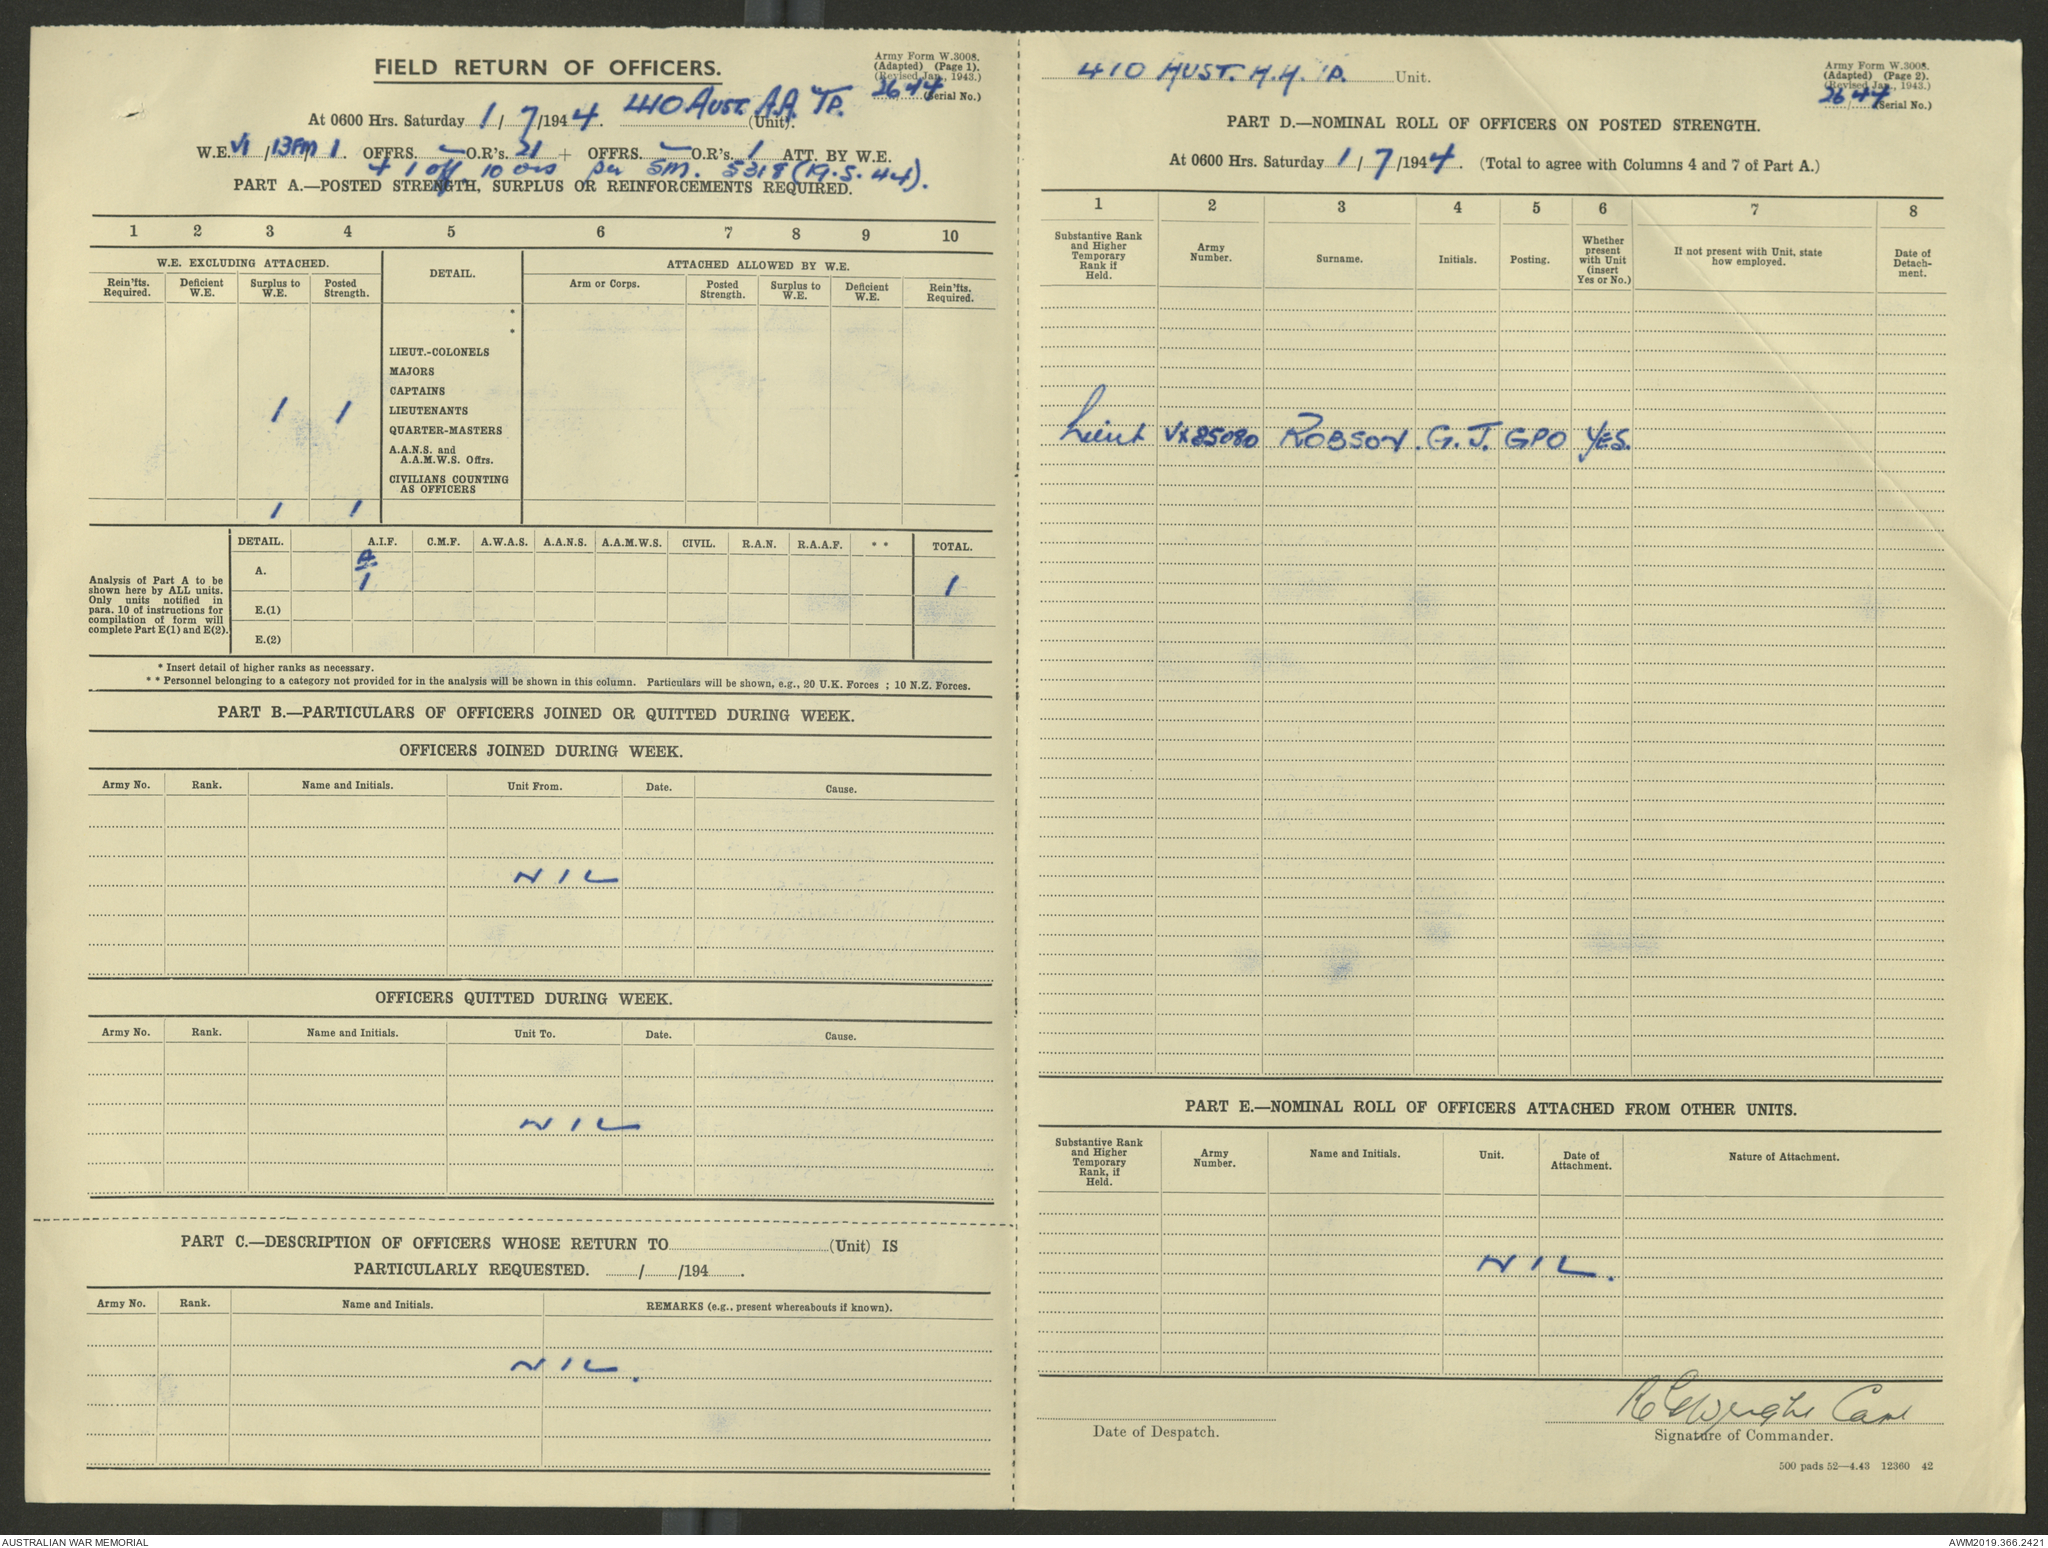 FIELD RETURN OF OFFICERS.
Army Form W.3008.
(Adapted) (Page 1).
(Revised Jan., 1943.)
26 44 (Serial No.)
At 0600 Hrs. Saturday 1/7/1944. 410 AUST. A.A. TP. (Unit).
W.E. VI / 13PM / 1. OFFRS. — O.R's. 21 + OFFRS. — O.R's. 1 ATT. BY W.E.
+ 1 off. 10 ors per SM. 5318 (19.5.44).
PART A.—POSTED STRENGTH, SURPLUS OR REINFORCEMENTS REQUIRED.
1 2 3 4 5 6 7 8 9 10
W.E. EXCLUDING ATTACHED. DETAIL. ATTACHED ALLOWED BY W.E.
Rein'fts. Required. Deficient W.E. Surplus to W.E. Posted Strength. Arm or Corps. Posted Strength. Surplus to W.E. Deficient W.E. Rein'fts. Required.
*
*
LIEUT.-COLONELS
MAJORS
CAPTAINS
1 1 LIEUTENANTS
QUARTER-MASTERS
A.A.N.S. and
A.A.M.W.S. Offrs.
CIVILIANS COUNTING
AS OFFICERS
1 1
Analysis of Part A to be
shown here by ALL units.
Only units notified in
para. 10 of instructions for
compilation of form will
complete Part E(1) and E(2).
DETAIL. A.I.F. C.M.F. A.W.A.S. A.A.N.S. A.A.M.W.S. CIVIL. R.A.N. R.A.A.F. * * TOTAL.
A. A 1 1
E.(1)
E.(2)
* Insert detail of higher ranks as necessary.
* * Personnel belonging to a category not provided for in the analysis will be shown in this column. Particulars will be shown, e.g., 20 U.K. Forces ; 10 N.Z. Forces.
PART B.—PARTICULARS OF OFFICERS JOINED OR QUITTED DURING WEEK.
OFFICERS JOINED DURING WEEK.
Army No. Rank. Name and Initials. Unit From. Date. Cause.
NIL
OFFICERS QUITTED DURING WEEK.
Army No. Rank. Name and Initials. Unit To. Date. Cause.
NIL
PART C.—DESCRIPTION OF OFFICERS WHOSE RETURN TO (Unit) IS
PARTICULARLY REQUESTED. / /194 .
Army No. Rank. Name and Initials. REMARKS (e.g., present whereabouts if known).
NIL.
410 AUST. A.A. TP. Unit.
Army Form W.3008.
(Adapted) (Page 2).
(Revised Jan., 1943.)
26 44 (Serial No.)
PART D.—NOMINAL ROLL OF OFFICERS ON POSTED STRENGTH.
At 0600 Hrs. Saturday 1/7/1944. (Total to agree with Columns 4 and 7 of Part A.)
1 2 3 4 5 6 7 8
Substantive Rank and Higher Temporary Rank if Held. Army Number. Surname. Initials. Posting. Whether present with Unit (insert Yes or No.) If not present with Unit, state how employed. Date of Detach-ment.
Lieut VX85080 ROBSON. G.J. GPO YES.
PART E.—NOMINAL ROLL OF OFFICERS ATTACHED FROM OTHER UNITS.
Substantive Rank and Higher Temporary Rank, if Held. Army Number. Name and Initials. Unit. Date of Attachment. Nature of Attachment.
NIL.
Wright Capt
Date of Despatch. Signature of Commander.
500 pads 52—4.43 12360 42
AUSTRALIAN WAR MEMORIAL AWM2019.366.2421